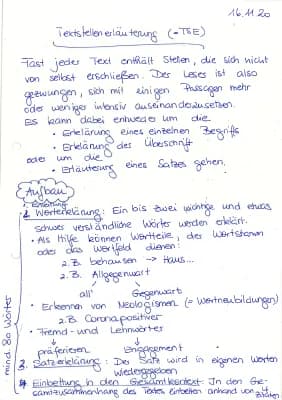 16.11.20
Textstellenerläuterung (-TSE)
Fast jeder Text enthält Stellen, die sich nicht
von selbst erschließen. Der Leser ist also
gezwungen, sich mit einigen Passagen mehr
oder weniger intensiv auseinanderzusetzen.
Es kann dabei entweder um die
• Erklärung eines einzelnen Begriffs
• Erklärung der Überschrift
oder um die
• Erläuterung eines Satzes gehen.
Aufbau
2. Worterklärung: Ein bis zwei wichtige und etwas
schwer verständliche Wörter werden erklärt.
• Als Hilfe können Wortteile, der Wortstamm
oder das Wortfeld dienen:
z.B. behausen → Haus...
z.B. Allgegenwart
all' Gegenwart
• Erkennen von Neologismen (= Wortneubildungen)
z.B. Coronapositiver
• Fremd- und Lehnwörter
präferieren Engagement
3. Satzerklärung: Der Satz wird in eigenen Worten
wiedergegeben
4. Einbettung in den Gesamtkontext: In den Ge-
samtzusammenhang des Textes einbetten anhand von
Zitaten
mind. 80 Wörter